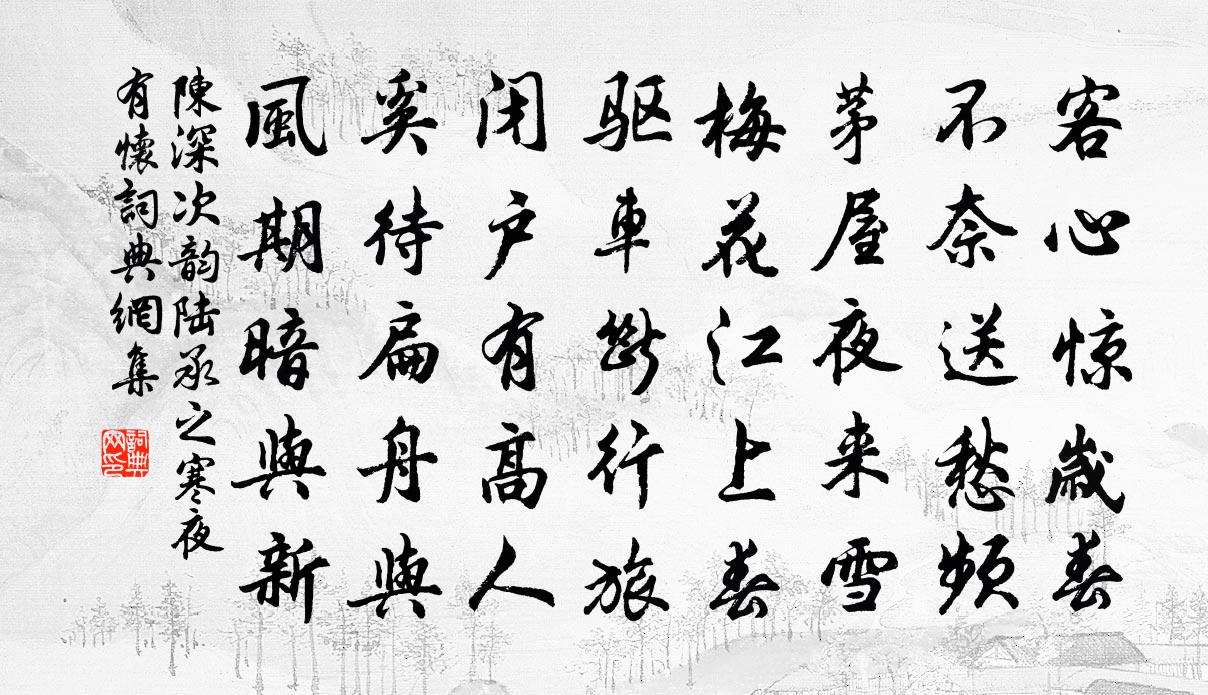 客心惊歲春
不奈送愁频
茅屋夜来雪
梅花江上春
驱車斷行旅
闭户有高人
奚待扁舟與
風期暗與新
陳深次韵陆承之寒夜
有懷詞典網集
詞典
网印